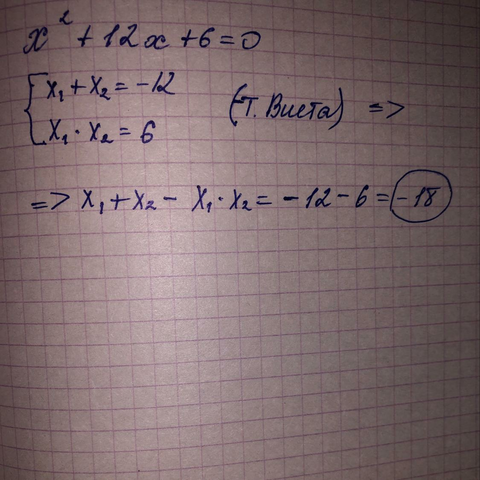 x² + 12x + 6 = 0
{ x₁ + x₂ = -12
x₁ · x₂ = 6 (Т. Виета) =>
=> x₁ + x₂ - x₁ · x₂ = -12 - 6 = -18